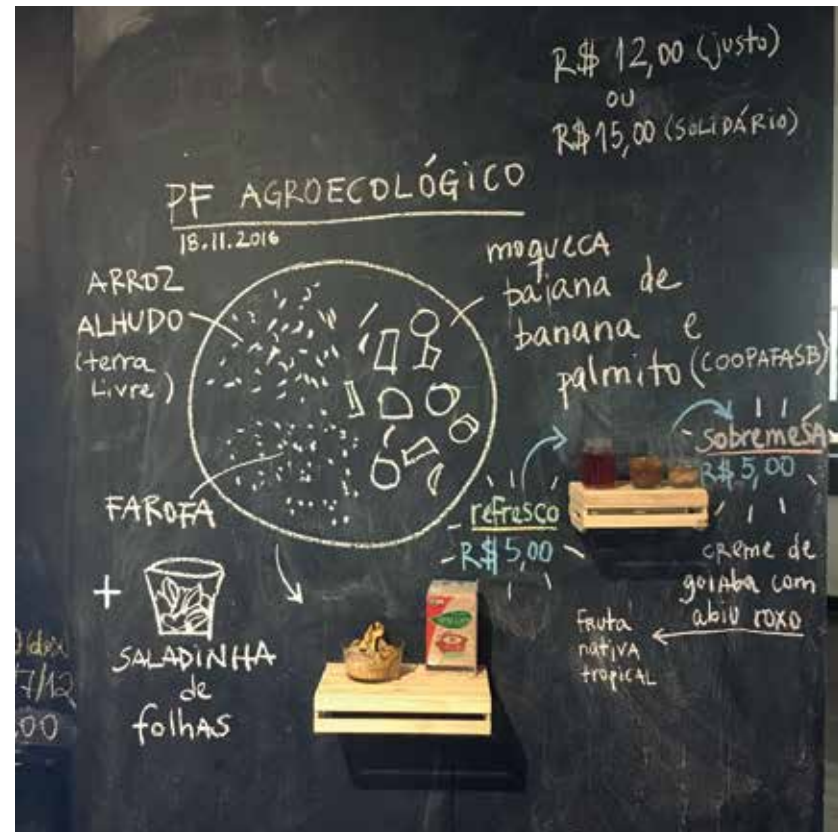 R$ 12,00 (justo)
OU
R$ 15,00 (SOLIDÁRIO)
PF AGROECOLÓGICO
18.11.2016
ARROZ
ALHUDO
(terra
Livre)
moqueca
baiana de
banana e
palmito (COOPAFASB)
FAROFA
+
SALADINHA
de
folhAS
refresco
R$ 5,00
sobremesa
R$ 5,00
creme de
goiAba com
abiu roxo
fruta
nativa
tropicAL
7/12
,00